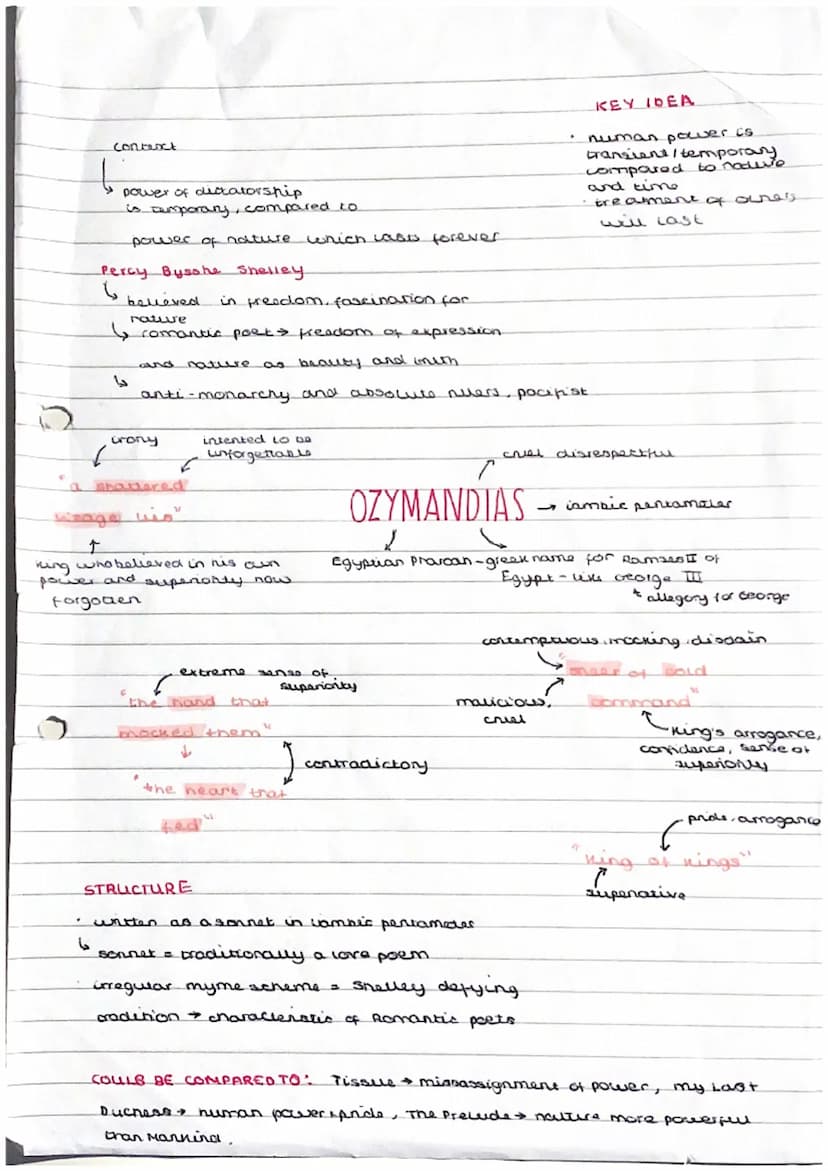 KEY IDEA
· human power is
transient/temporary
compared to nature
and time
· treatment of others
will last
context
↳ power of dictatorship
is temporary, compared to
power of nature which lasts forever
Percy Bysshe Shelley
↳ believed in freedom, fascination for
nature
↳ romantic poet → freedom of expression
and nature as beauty and truth
↳ anti-monarchy and absolute rulers, pacifist
irony
intented to be
unforgettable
"a shattered
visage lies"
king who believed in his own
power and superiority now
forgotten
cruel disrespectful
OZYMANDIAS → iambic pentameter
Egyptian Pharoah - greek name for Ramses II of
Egypt - like George III
* allegory for George
extreme sense of
superiority
"the hand that
mocked them"
contradictory
"the heart that
fed"
contemptuous, mocking, disdain
"sneer of cold
command"
malicious,
cruel
King's arrogance,
confidence, sense of
superiority
pride, arrogance
"king of kings"
superlative
STRUCTURE
· written as a sonnet in iambic pentameter
↳ sonnet = traditionally a love poem
· irregular rhyme scheme = Shelley defying
tradition → characteristic of Romantic poets
COULD BE COMPARED TO: Tissue → misassignment of power, My Last
Duchess → human power + pride, The Prelude → nature more powerful
than Mankind.